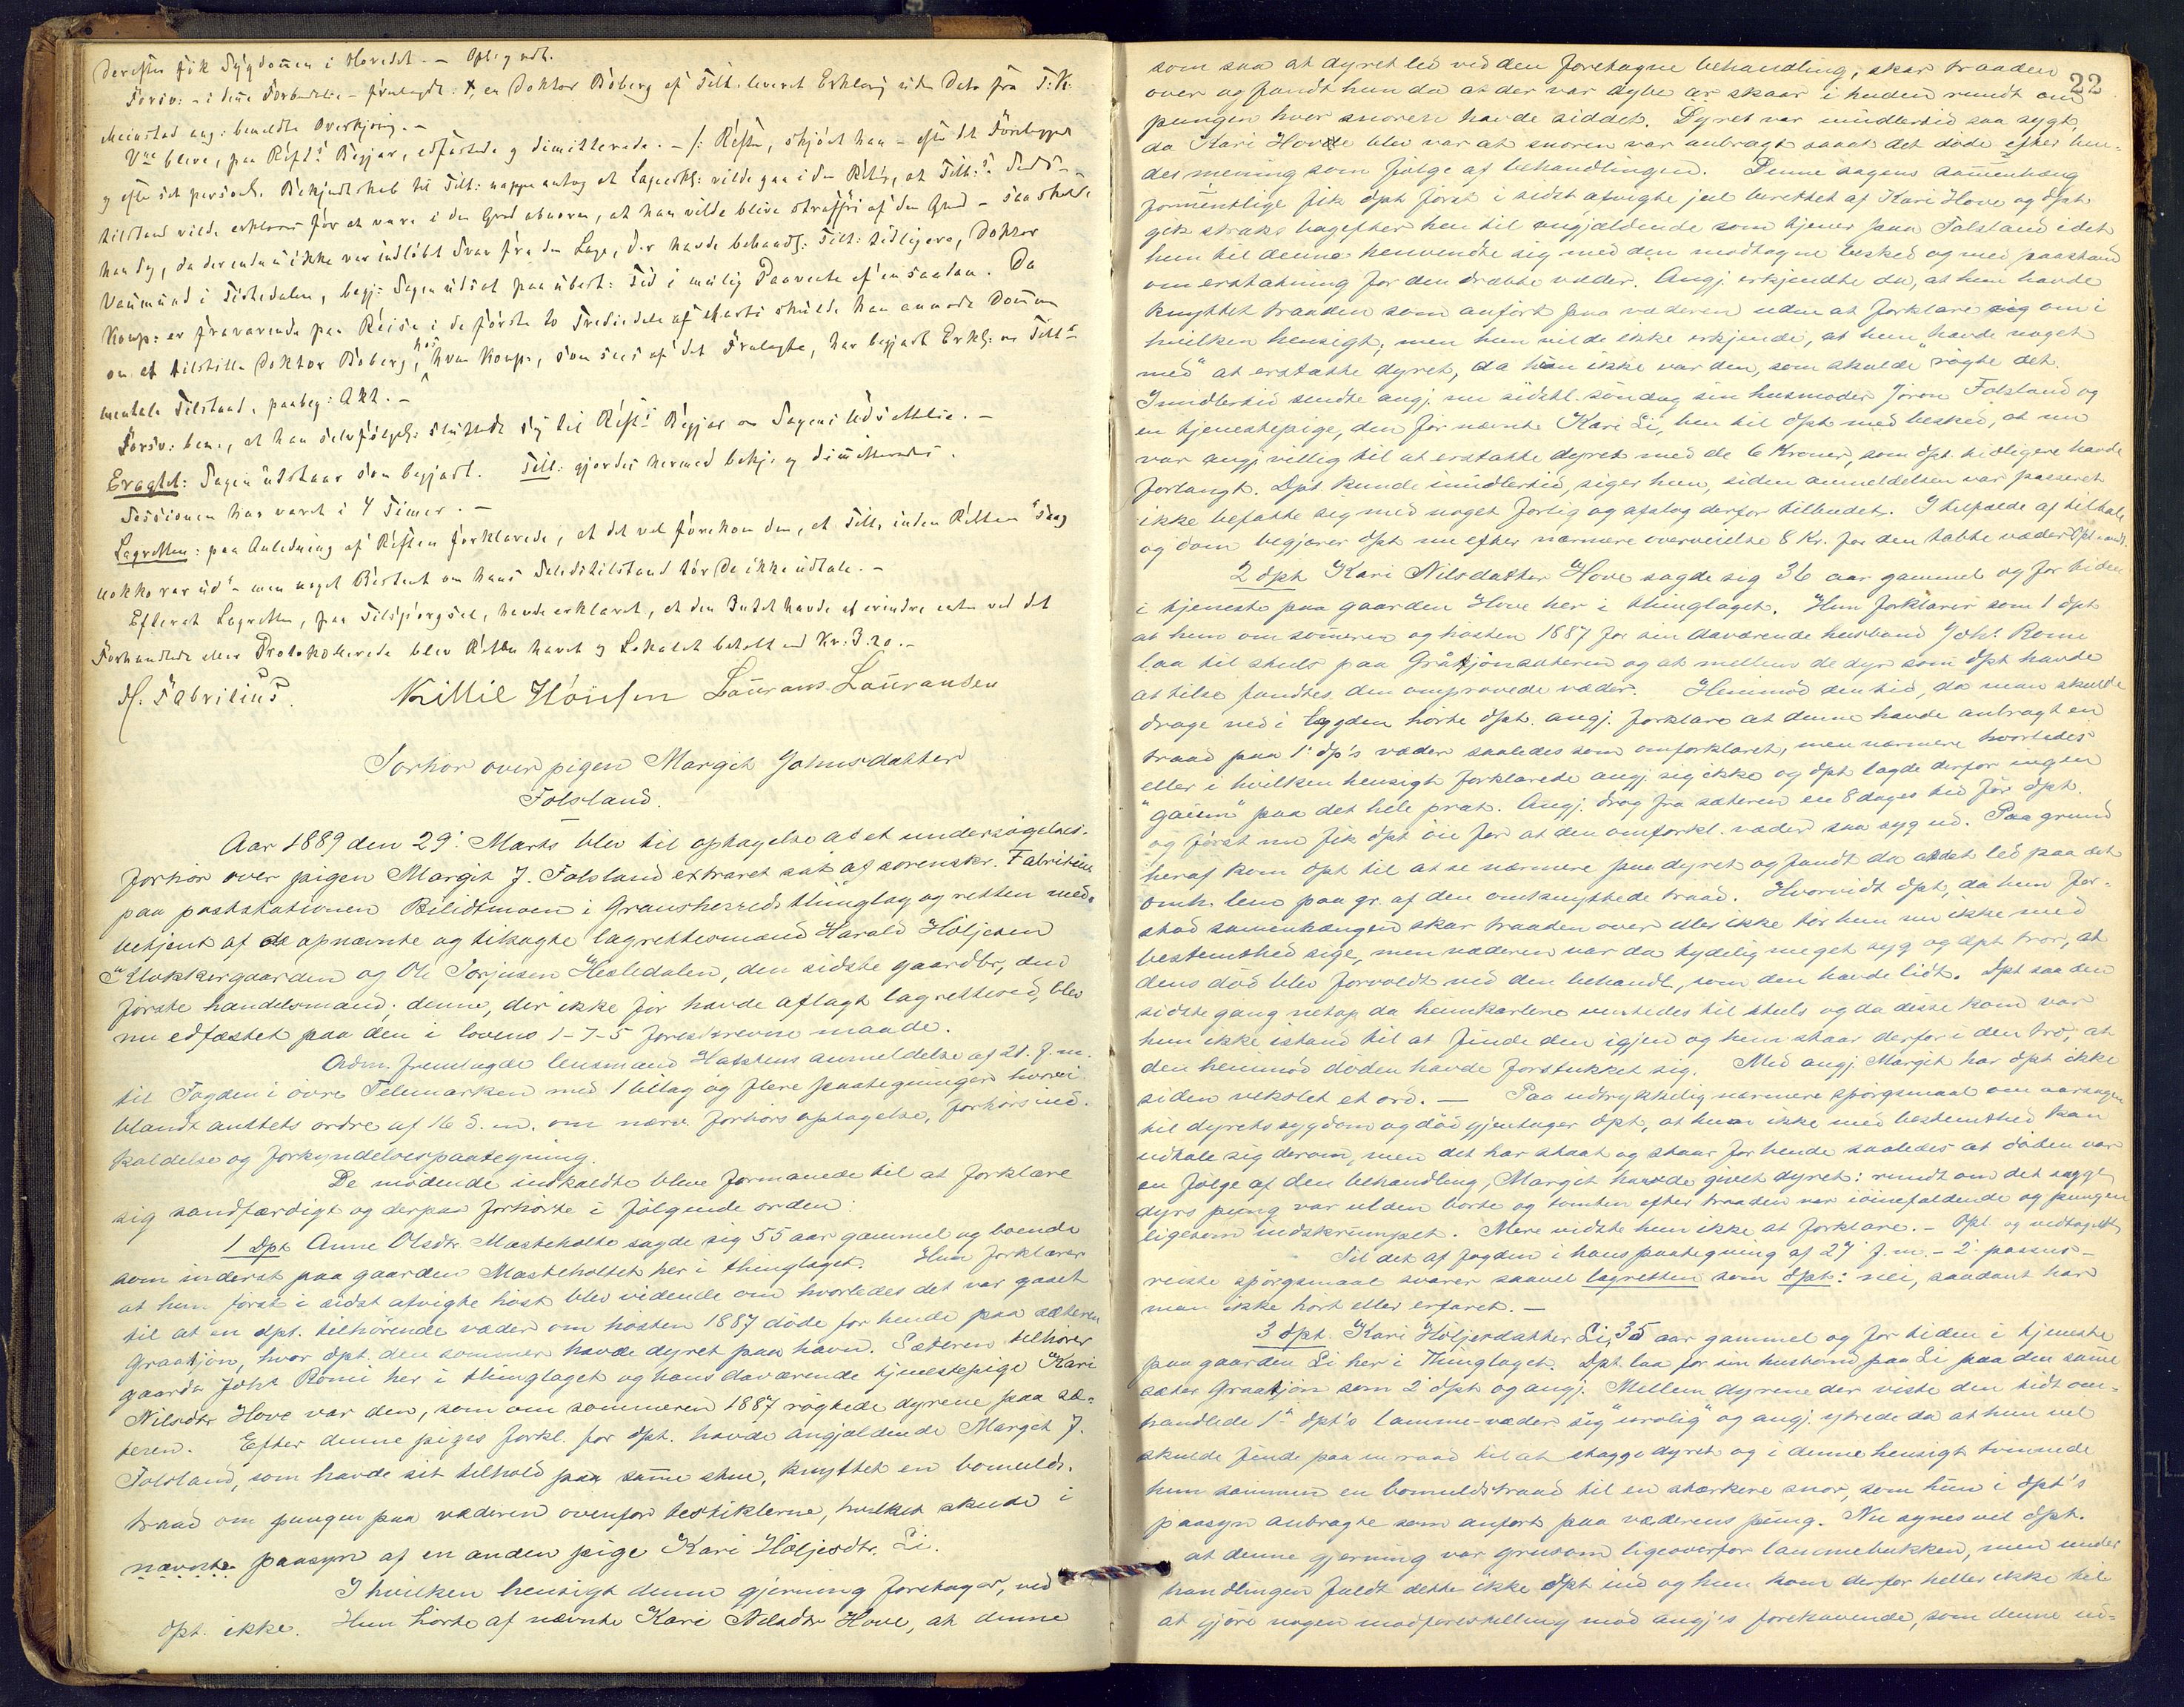 derefter fik Sygdommen i Hovedet. — Opl. og vedt.
Forsv: - i dine Forbindelse - fremlagde: X, en Doktor Boberg af Tilt. leveret Erklæring uden Dato fra T. K.
Meinstad ang: bemeldte Overkjøring. —
Vne bleve, paa Refts Begjær, edfæstede og dimitterede. — /: Reften, skjønt han - efter det Forelagte
og efter sit personl. Bekjendtskab til Tilt: nappe antog at Lægeerkl: vilde gaa i den Retng, at Tilt:s Sinds-
tilstand vilde erklæres før at være i den Grad abnorm, at han vilde blive straffri af den Grund - saa skulde
han dog, da der endnu ikke var indløbt Svar fra den Læge, der havde behandl: Tilt: tidligere, Doktor
Vaumund i Tistedalen, begj: Sagen udsat paa ubest: Tid i mulig Paavente af en saadan. Da
Komp: er fraværende paa Reise i de første to Trediedele af Marts skulde han anmode Dommeren
om at tilstille Doktor Boberg, hos hvem Komp:, som sees af det Fremlagte, har begjært Erkl: om Tilts
mentale Tilstand, paabeg: Akt. —
Forsv: bem:, at han selvfølgelig sluttede sig til Refts Begjær om Sagens Udsættelse. —
Eragtet: Sagen udstaar som begjært. Tilt: gjordes hermed bekj. og dimitteredes.
Sessionen har varet i 4 Timer. —
Lagretten: paa Anledning af Reften forklarede, at det vel forekom dem, at Tilt, inden Retten "saag
nokko rar ud" - men noget Bestemt om hans Sindstilstand tør De ikke udtale. —
Efterat Lagretten, paa Tilspørgsel, havde erklæret, at den Intet havde at erindre enten ved det
Forhandlede eller Protokollerede blev Retten hævet og Lokalet betalt med Kr. 3.20. —
H. Fabritius. Kittil Hönsen Laurans Lauransen
Forhör over pigen Margit Johnsdatter
Folsland.
Aar 1889 den 29' Marts blev til optagelse af et undersögelses-
forhör over pigen Margit J. Folsland extraret sat af sorenskr. Fabritius
paa poststationen Bolkesmoen i Gransherreds thinglag og retten med-
betjent af de opnævnte og tilsagte lagrettesmænd Harald Höljesen
Klokkergaarden og Ole Torjusen Hesledalen, den sidste gaardbr, den
förste handelsmand; denne, der ikke för havde aflagt lagrettesed, blev
nu edfæstet paa den i lovens 1-7-5 foreskrevne maade.
Adm. fremlagde lensmand Hatstens anmeldelse af 21. f. m.
til Fogden i övre Telemarken med 1 bilag og flere paategninger hvori-
blandt amtets ordre af 16 d. m. om nærv. forhörs optagelse, forhörsind-
kaldelse og forkyndelsespaategning.
De mödende indkaldte bleve formanede til at forklare
sig sandfærdigt og derpaa forhörte i fölgende orden:
1 Dpt Anne Olsdtr Masteholte sagde sig 55 aar gammel og boende
som inderst paa gaarden Masteholtet her i thinglaget. Hun forklarer
at hun först i sidst afvigte höst blev vidende om hvorledes det var gaaet
til at en dpt. tilhörende væder om hösten 1887 döde for hende paa sæteren
Graatjön, hvor dpt. den sommer havde dyret paa havn. Sæteren tilhörer
gaardbr Johs Romi her i thinglaget og hans daværende tjenestepige Kari
Nilsdtr Hove var den, som om sommeren 1887 rögtede dyrene paa sæ-
teren. Efter denne piges forkl. for dpt. havde angjældende Margit J.
Folsland, som havde sit tilhold paa samme støe, knyttet en bomulds-
traad om pungen paa væderen ovenfor testiklerne, hvilket skede i
nævnte paasyn af en anden pige Kari Höljesdtr. Li.
I hvilken hensigt denne gjerning foretoges, ved
dpt. ikke. Hun hörte af nævnte Kari Nilsdtr Hove, at denne
22
som saa at dyret led ved den foretagne behandling, skar traaden
over og fandt hun da at der var dybe ar skaar i huden rundt om
pungen hvor snoren havde siddet. Dyret var imidlertid saa sygt,
da Kari Hove blev var at snoren var anbragt saaat det döde efter hen-
des mening som fölge af behandlingen. Denne sagens sammenhæng
formentlige fik dpt först i sidst afvigte jul berettet af Kari Hove og dpt.
gik straks bagefter hen til angjældende som tjener paa Folsland idet
hun til denne henvendte sig med den modtagne besked og med paastand
om erstatning for den dræbte væder. Angj. erkjendte da, at hun havde
knyttet traaden som anfört paa væderen uden at forklare sig om i
hvilken hensigt, men hun vilde ikke erkjende, at hun "havde noget
med" at erstatte dyret, da hun ikke var den, som skulde rögte det.
Imidlertid sendte angj. nu sidstl. söndag sin husmoder Jöron Folsland og
en tjenestepige, den för nævnte Kari Li, hen til dpt med besked, at nu
var angj villig til at erstatte dyret med de 6 Kroner, som dpt tidligere havde
forlangt. Dpt. kunde imidlertid, siger hun, siden anmeldelsen var passeret
ikke befatte sig med noget forlig og afslog derfor tilbudet. I tilfælde af tiltale
og dom begjærer dpt nu efter nærmere overveielse 8 Kr. for den tabte væder. Opl. & vedt.
2 dpt Kari Nilsdatter Hove sagde sig 36 aar gammel og for tiden
i tjeneste paa gaarden Hove her i thinglaget. Hun forklarer som 1 dpt
at hun om sömeren og hösten 1887 for sin daværende husbond Johs. Romi
laa til støls paa Gråtjönsæteren og at mellem de dyr som dpt havde
at tilse fandtes den omprövede væder. Henimod den tid, da man skulde
drage ned i bygden hörte dpt. angj. forklare at denne havde anbragt en
traad paa 1' dp's væder saaledes som omforklaret, men nærmere hvorledes
eller i hvilken hensigt forklarede angj. sig ikke og dpt lagde derfor ingen
"gaum" paa det hele prat. Angj. drog fra sæteren en 8 dages tid för dpt.
og först nu fik dpt öie for at den omforkl. væder saa syg ud. Paa grund
heraf kom dpt til at se nærmere paa dyret og fandt da at det led paa det
omh. lem paa gr. af den omknyttede traad. Hvorvidt dpt, da hun for-
stod sammenhængen skar traaden over eller ikke tör hun nu ikke med
bestemthed sige, men væderen var da tydelig meget syg og dpt tror, at
dens död blev forvoldt ved den behandl, som den havde lidt. Dpt saa den
sidste gang netop da heimkarlene ventedes til støls og da disse kom var
hun ikke istand til at finde den igjen og hun staar derfor i den tro, at
den henimod döden havde forstukket sig. Med angj. Margit har dpt ikke
siden vekslet et ord. — Paa udtrykkelig nærmere spörgsmaal om aarsagen
til dyrets sygdom og död gjentager dpt, at hun ikke med bestemthed kan
udtale sig derom, men det har staat og staar for hende saaledes at döden var
en fölge af den behandling, Margit havde givet dyret: rundt om det sagge
dyrs pung var ulden borte og tomten efter traaden var iöinefaldende og pungen
ligesom indskrumpet. Mere vidste hun ikke at forklare. — Opl. og vedtaget.
Til det af fogden i hans paategning af 27 f. m. - 2' passus -
reiste spörgsmaal svarer saavel lagretten som dpt: nei, saadant har
man ikke hört eller erfaret. —
3 dpt. Kari Höljesdatter Li, 35 aar gammel og for tiden i tjeneste
paa gaarden Li her i Thinglaget. Dpt. laa for sin husbond paa Li paa den samme
sæter Graatjön som 2' dpt og angj. Mellem dyrene der viste den tidt om-
handlede 1ste dpt's lamme-væder sig "urolig" og angj. ytrede da at hun vel
skulde finde paa en raad til at stagge dyret og i denne hensigt tvinnede
hun sammen en bomuldstraad til en stærkere snor, som hun i dpt's
paasyn anbragte som anfört paa væderens pung. Nu synes vel dpt.
at denne gjerning var grusom ligeoverfor lammebukken, men under
handlingen faldt dette ikke dpt ind og hun kom derfor heller ikke til
at gjöre nogen modforestilling mod angj's forehavende, som denne ud-